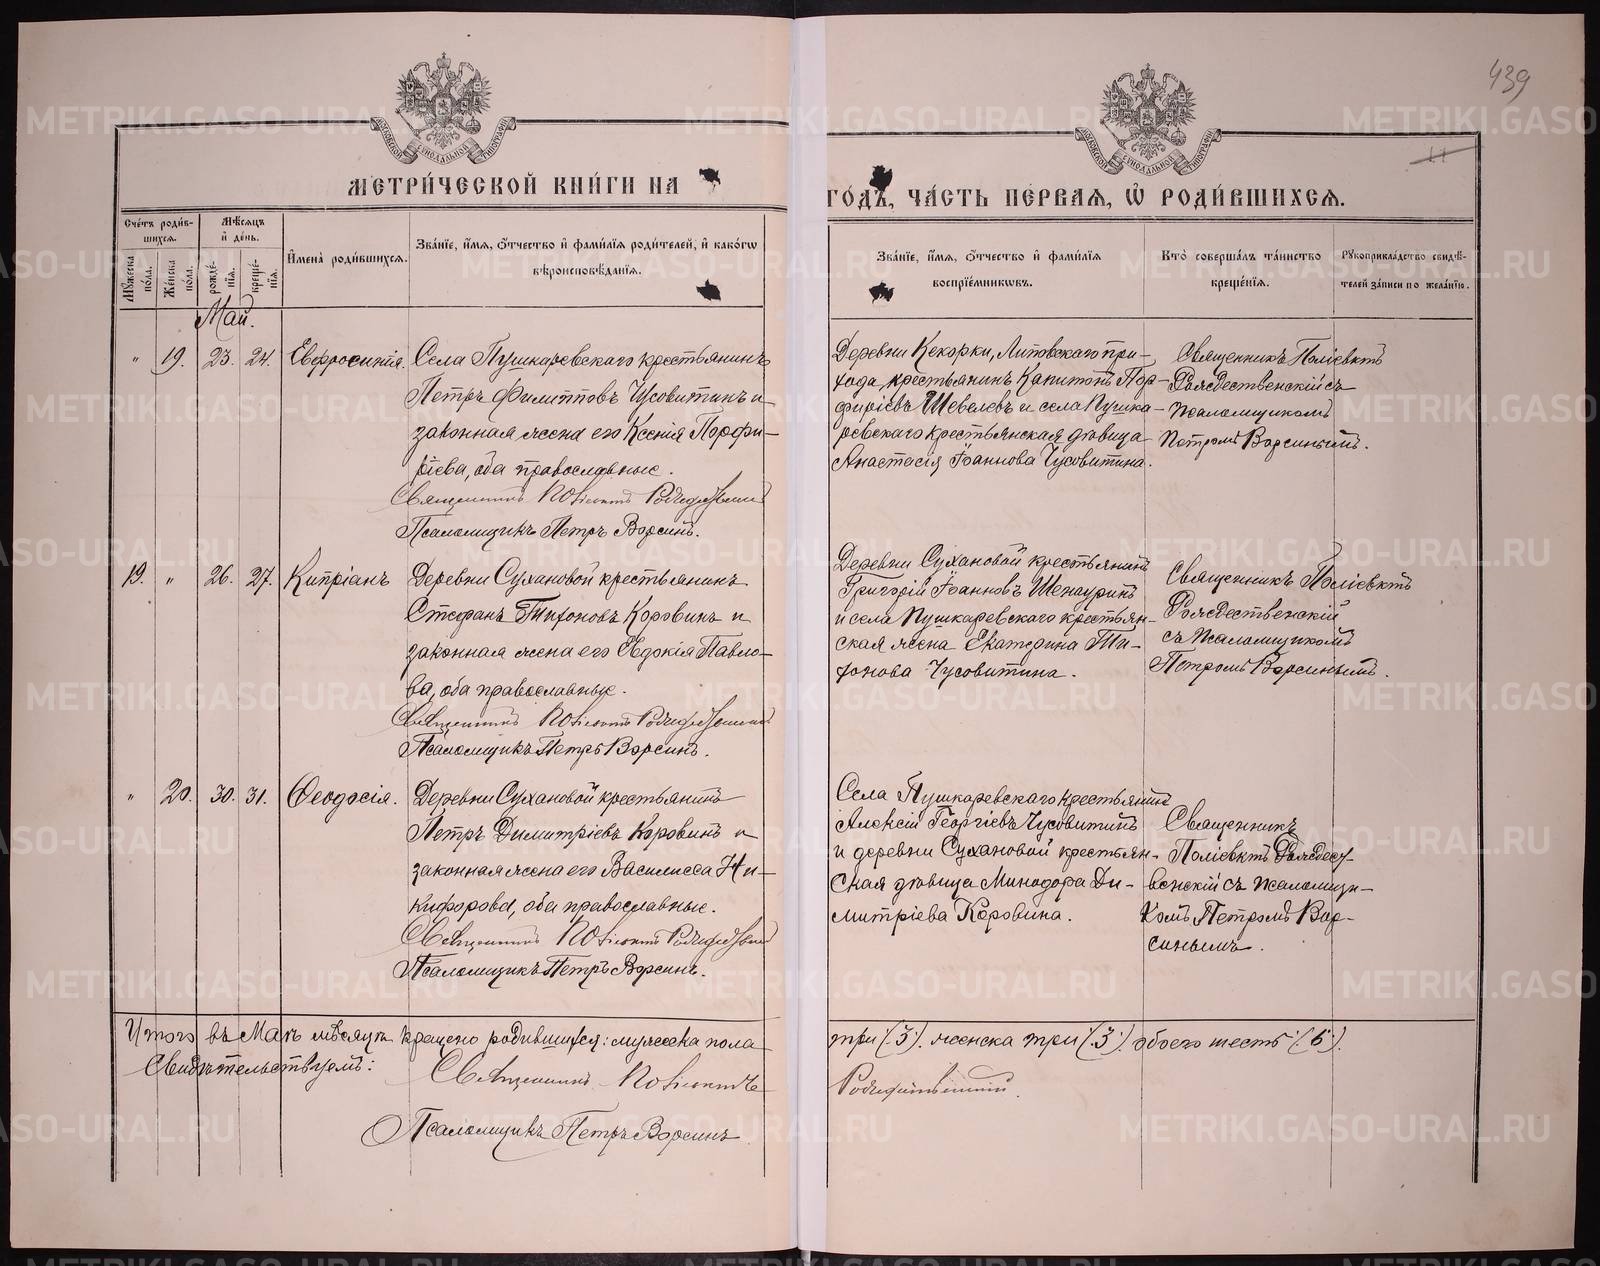 439
11
МОСКОВСКОЙ СѴНОДАЛЬНОЙ ТИПОГРАФІИ
МЕТРИ́ЧЕСКОЙ КНИ́ГИ НА
ГО́ДЪ, ЧА́СТЬ ПЕ́РВАѦ, Ѡ҆ РОДИ́ВШИХСѦ.
Сче́тъ роди́в-
шихсѧ.
Мꙋ́жеска по́ла.
Же́нска по́ла.
Мѣ́сѧцъ
и҆ де́нь.
рожде́-нїѧ.
креще́-нїѧ.
И҆мена̀ роди́вшихсѧ.
Зва́нїе, и҆́мѧ, ѻ҆́тчество и҆ фами́лїѧ роди́телей, и҆ како́гѡ
вѣроисповѣ́данїѧ.
Зва́нїе, и҆́мѧ, ѻ҆́тчество и҆ фами́лїѧ
воспрїе́мникѡвъ.
Кто̀ соверша́лъ та́инство
креще́нїѧ.
Рꙋкоприкла́дство свидѣ́-
телей за́писи по жела́нїю.
Май.
„ 19. 23. 24. Евфросинія.
Села Пушкаревскаго крестьянинъ
Петръ Филипповъ Чусовитинъ и
законная жена его Ксенія Порфи-
ріева, оба православные.
Священникъ Поліевктъ Рождественскій
Псаломщикъ Петръ Ворсинъ.
Деревни Кекорки, Липовскаго при-
хода, крестьянинъ Капитонъ Пор-
фиріевъ Шевелевъ и села Пушка-
ревскаго крестьянская дѣвица
Анастасія Іоаннова Чусовитина.
Священникъ Поліевктъ
Рождественскій съ
псаломщикомъ
Петромъ Ворсинымъ.
19. „ 26. 27. Кипріанъ
Деревни Сухановой крестьянинъ
Стефанъ Тихоновъ Коровинъ и
законная жена его Евдокія Павло-
ва, оба православные.
Священникъ Поліевктъ Рождественскій
Псаломщикъ Петръ Ворсинъ.
Деревни Сухановой крестьянинъ
Григорій Іоанновъ
и села Пушкаревскаго крестьян-
ская жена Екатерина Ти-
хонова Чусовитина.
Священникъ Поліевктъ
Рождественскій
съ псаломщикомъ
Петромъ Ворсинымъ.
„ 20. 30. 31. Ѳеодосія.
Деревни Сухановой крестьянинъ
Петръ Димитріевъ Коровинъ и
законная жена его Василисса Ни-
кифорова, оба православные.
Священникъ Поліевктъ Рождественскій
Псаломщикъ Петръ Ворсинъ.
Села Пушкаревскаго крестьянинъ
Алексій Георгіевъ Чусовитинъ
и деревни Сухановой крестьян-
ская дѣвица Минодора Ди-
митріева Коровина.
Священникъ
Поліевктъ Рождест-
венскій съ псаломщи-
комъ Петромъ Вор-
синымъ.
Итого въ Маѣ мѣсяцѣ крещено родившихся: мужеска пола
три (3). женска три (3). обоего шесть (6).
Свидѣтельствуемъ:
Священникъ Поліевктъ
Рождественскій.
Псаломщикъ Петръ Ворсинъ.
METRIKI.GASO-URAL.RU